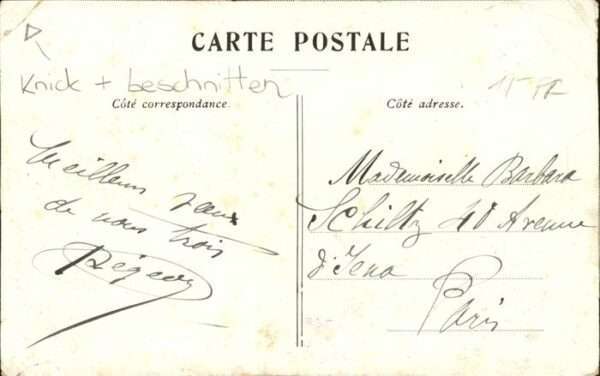 CARTE POSTALE
Knick + beschnitten
Côté correspondance.
Côté adresse.
Meilleurs vœux
de nous trois
Mademoiselle Barbara
Schiltz 40 Avenue
d'Iena
Paris